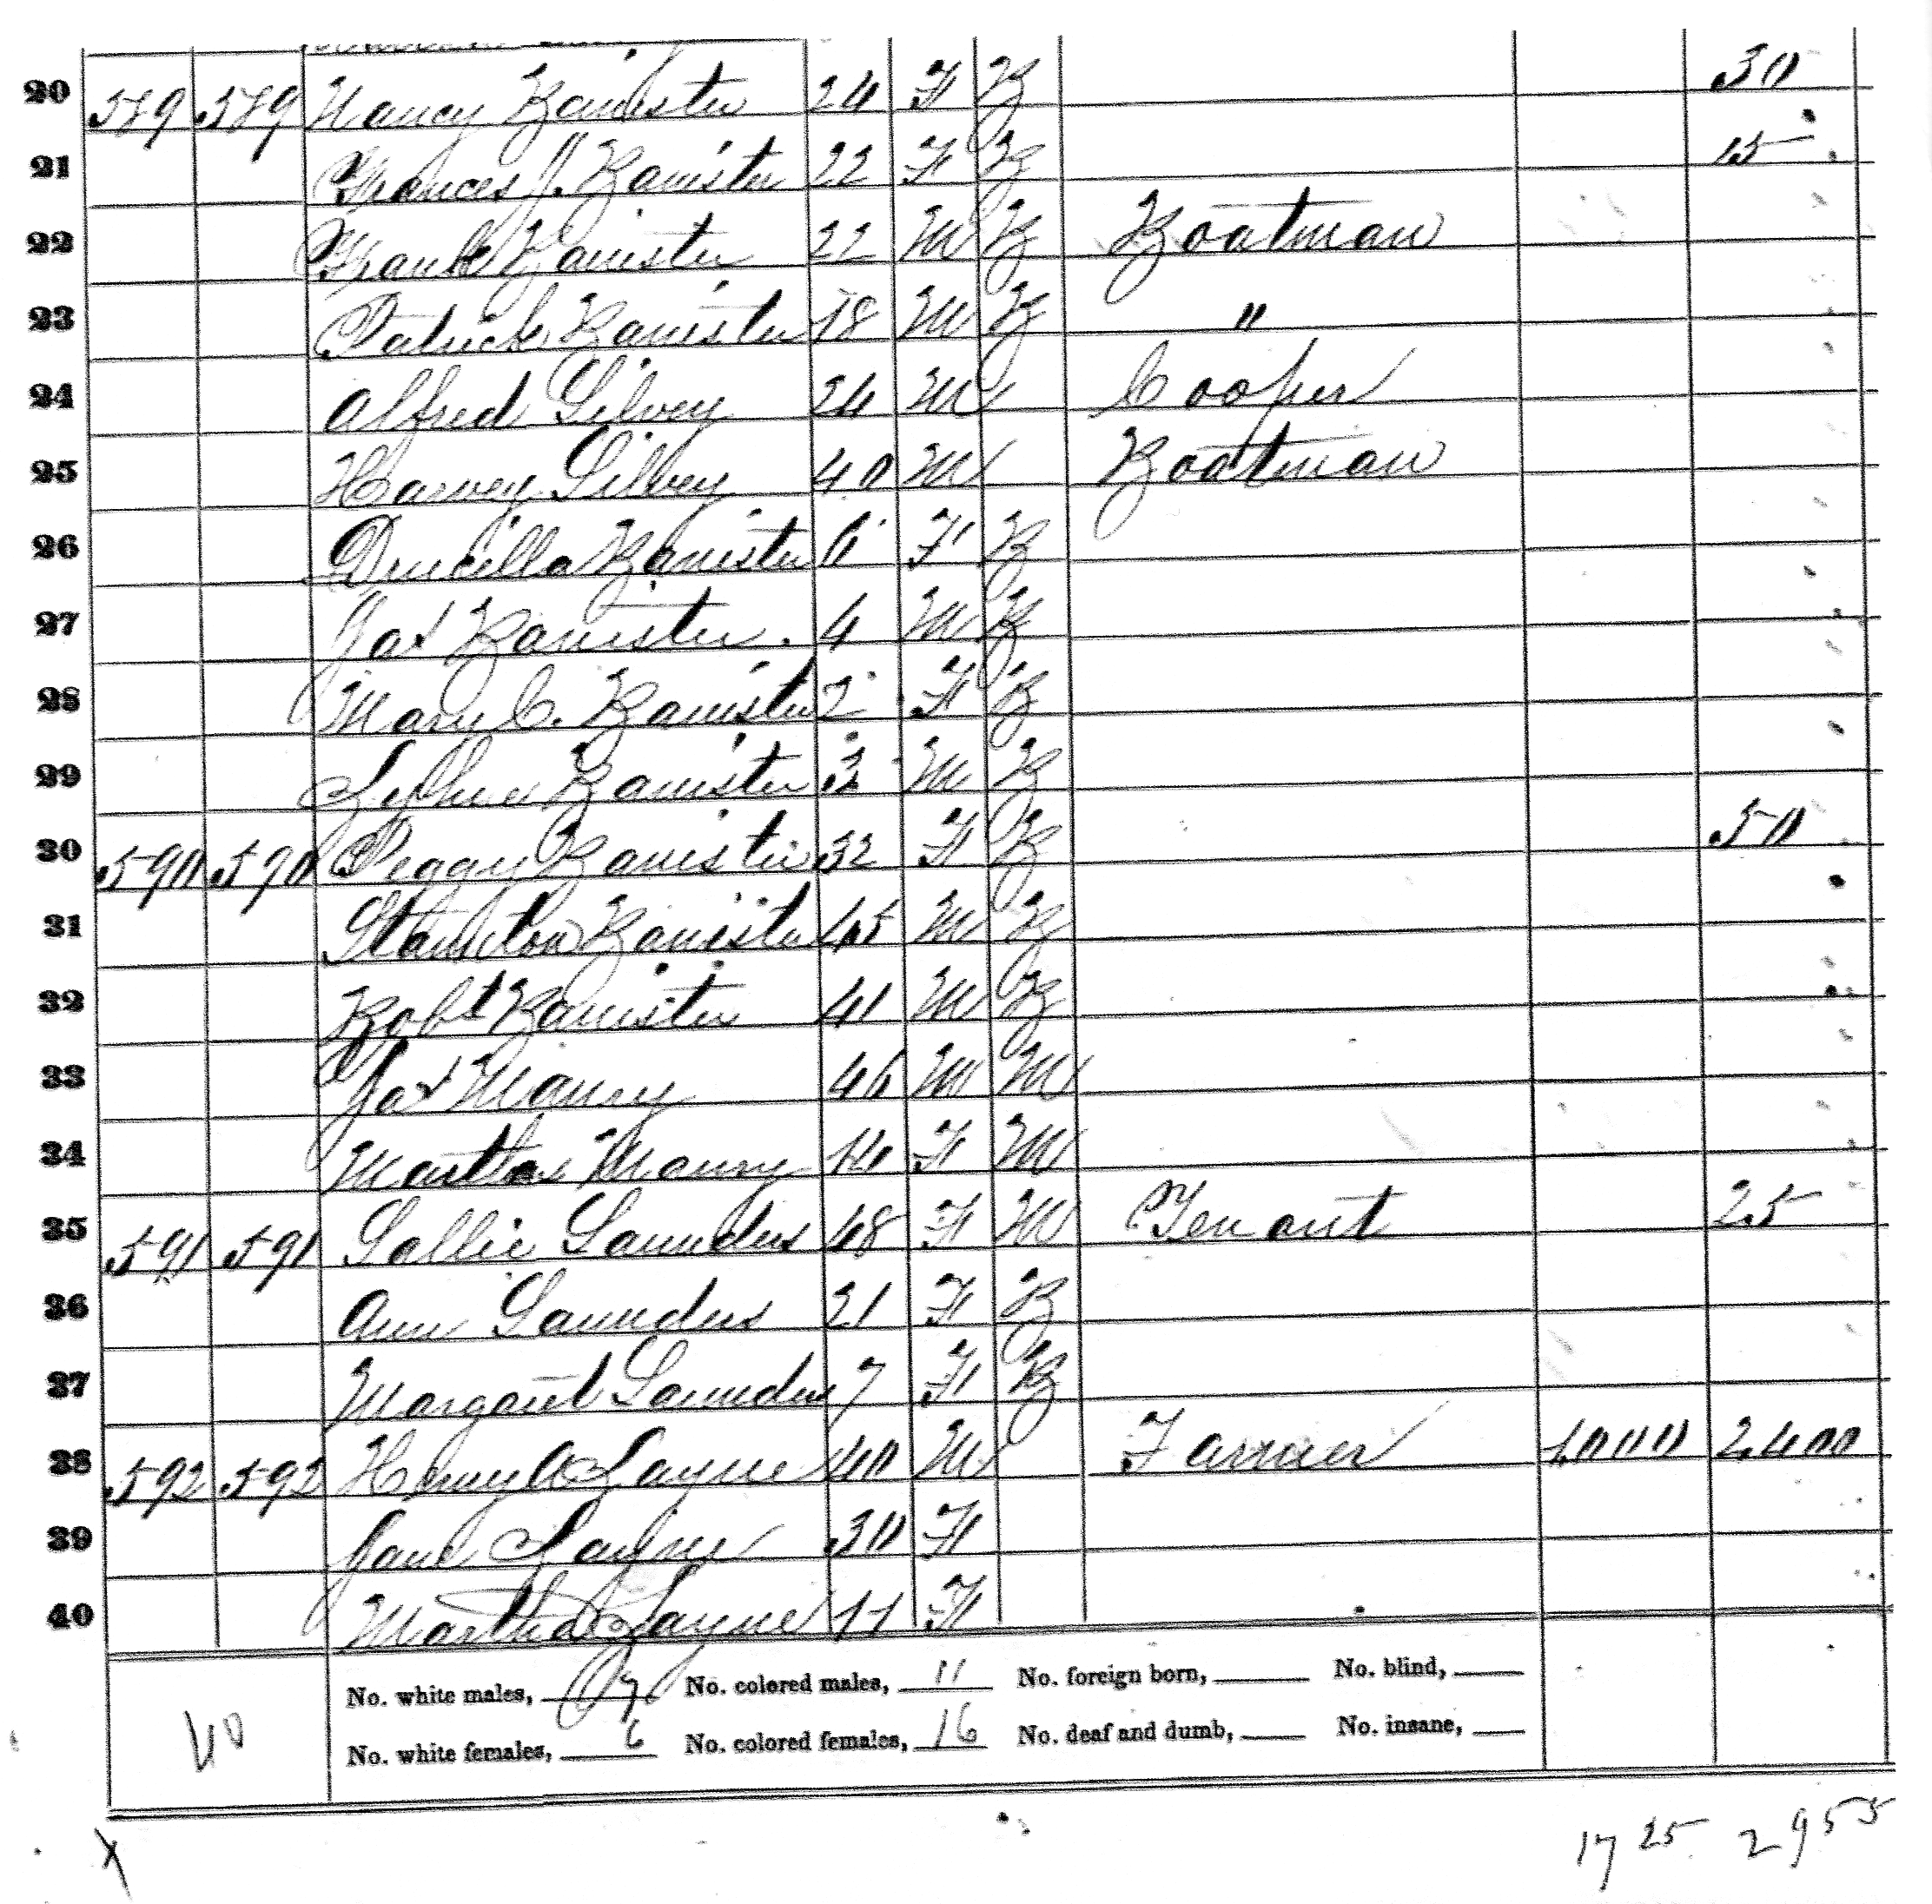 20 589 589 Nancy Banister 24 F B 30
21 Frances J. Banister 22 F B 15
22 Frank Banister 22 M B Boatman
23 Patrick Banister 18 M B "
24 Alfred Gilvey 24 M Cooper
25 Harvey Gilvey 40 M Boatman
26 Drucilla Banister 6 F B
27 Jas Banister. 4 M B
28 Mary C. Banister 2 F B
29 Banister M B
30 590 590 Peggy Banister 32 F B 50
31 Banister 45 M B
32 Robt Banister 41 M B
33 Jas Maury 46 M M
34 Martha Maury 14 F M
35 591 591 Sallie Saunders 48 F M Tenant 25
36 Ann Saunders 21 F B
37 Margaret Saunders 7 F B
38 592 592 Henry A Layne 40 M Farmer 1000 2400
39 Jane Layne 30 F
40 Martha Layne 11 F
No. white males, 7 No. colored males, 11 No. foreign born, No. blind,
40 No. white females, 6 No. colored females, 16 No. deaf and dumb, No. insane,
X 1725 2955